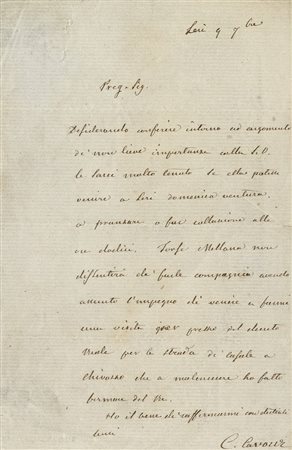 Leri 9 7bre
Preg. Sig.
Desiderando conferire intorno ad argomento
di non lieve importanza colla S.V.
le sarei molto tenuto se ella potesse
venire a Leri domenica ventura
a pranzare o far collazione alle
ore dodici. Forse Mellana non
dissentirà di farle compagnia avendo
assunto l'impegno di venire a farmi
una visita
Reale per la strada di Casale a
Chivasso che a malincuore ho fatto
firmare del Re.
Ho il bene di raffermarmi con distinti
C. Cavour